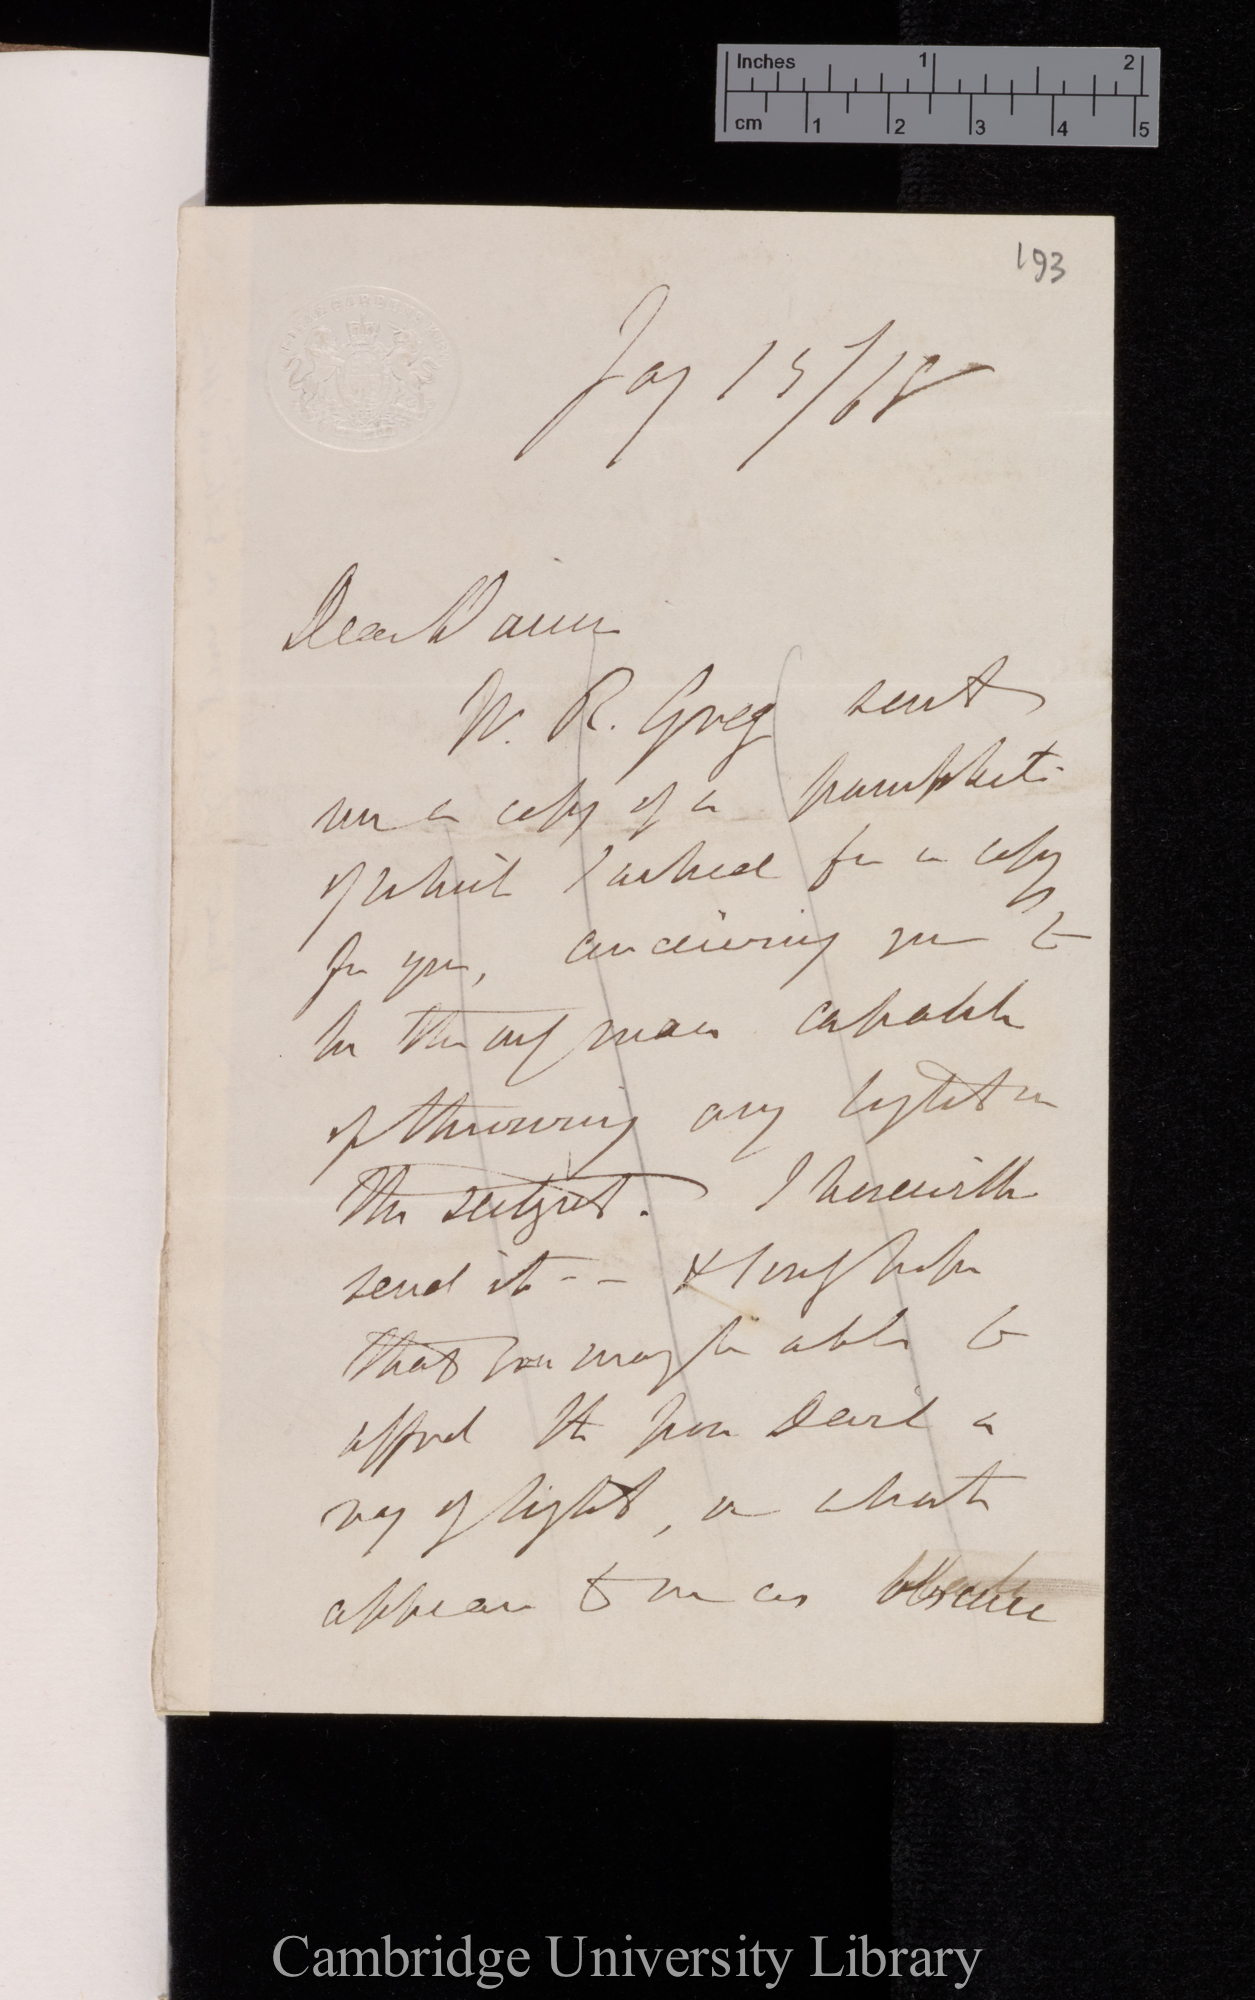 Inches 1 2
cm 1 2 3 4 5
193
Jany 15/68
Dear Darwin
W. R. Greg sent
me a copy of a pamphlet
of which I asked for a copy
for you, conceiving you to
be the only man capable
of throwing any light on
the subject. I herewith
send it -- & I only hope
that you may be able to
afford the poor Devil a
ray of light, on what
appears to me as obscure
Cambridge University Library